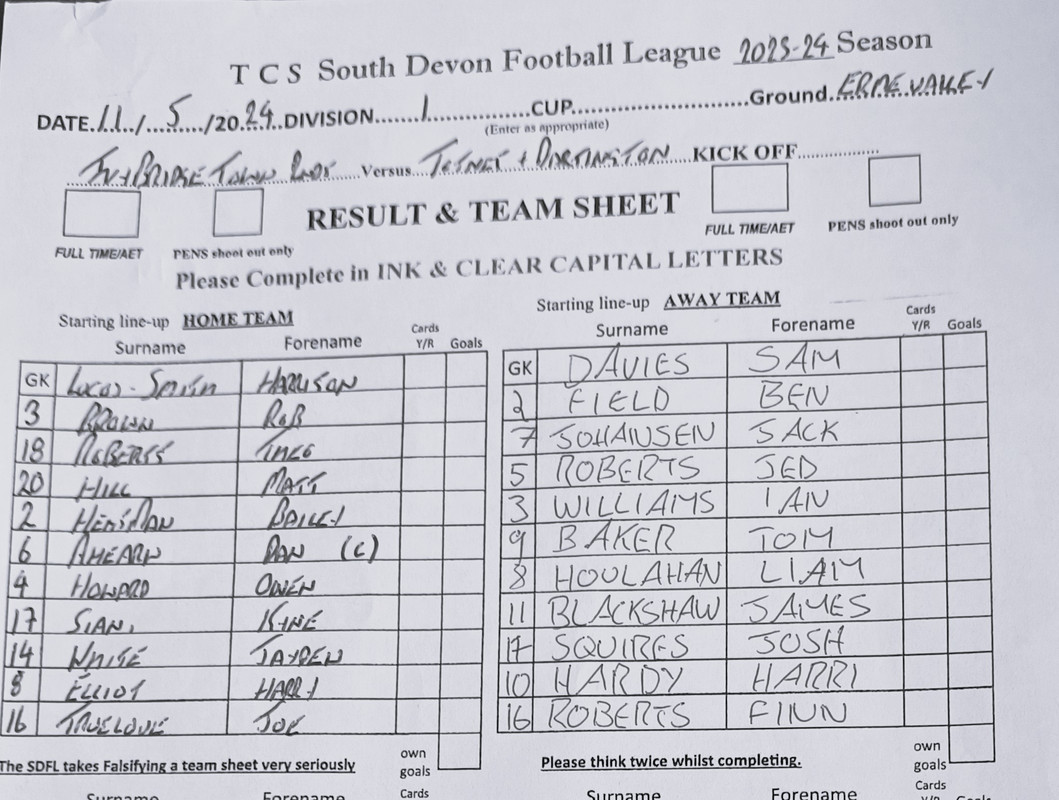 TCS South Devon Football League 2023-24 Season
DATE.11./...5.../20.24.DIVISION.......1...............CUP...........................Ground.ERME VALLEY
(Enter as appropriate)
IVYBRIDGE TOWN Versus TOTNES + DARTINGTON KICK OFF...............
RESULT & TEAM SHEET
FULL TIME/AET PENS shoot out only FULL TIME/AET PENS shoot out only
Please Complete in INK & CLEAR CAPITAL LETTERS
Starting line-up HOME TEAM Starting line-up AWAY TEAM
Surname Forename Cards Y/R Goals Surname Forename Cards Y/R Goals
GK LUCAS-SMITH HARRISON GK DAVIES SAM
3 BROWN ROB 2 FIELD BEN
18 ROBERTS 7 JOHANSEN JACK
20 HILL MATT 5 ROBERTS JED
2 BAILEY 3 WILLIAMS IAN
6 AHEARN DAN (C) 9 BAKER TOM
4 HOWARD OWEN 8 HOULAHAN LIAM
17 11 BLACKSHAW JAMES
14 WHITE JAYDEN 17 SQUIRES JOSH
8 ELLIOT HARRY 10 HARDY HARRI
16 TRUELOVE JOE 16 ROBERTS FINN
own goals own goals
The SDFL takes Falsifying a team sheet very seriously Please think twice whilst completing.
Surname Forename Cards Surname Forename Cards Y/R Goals